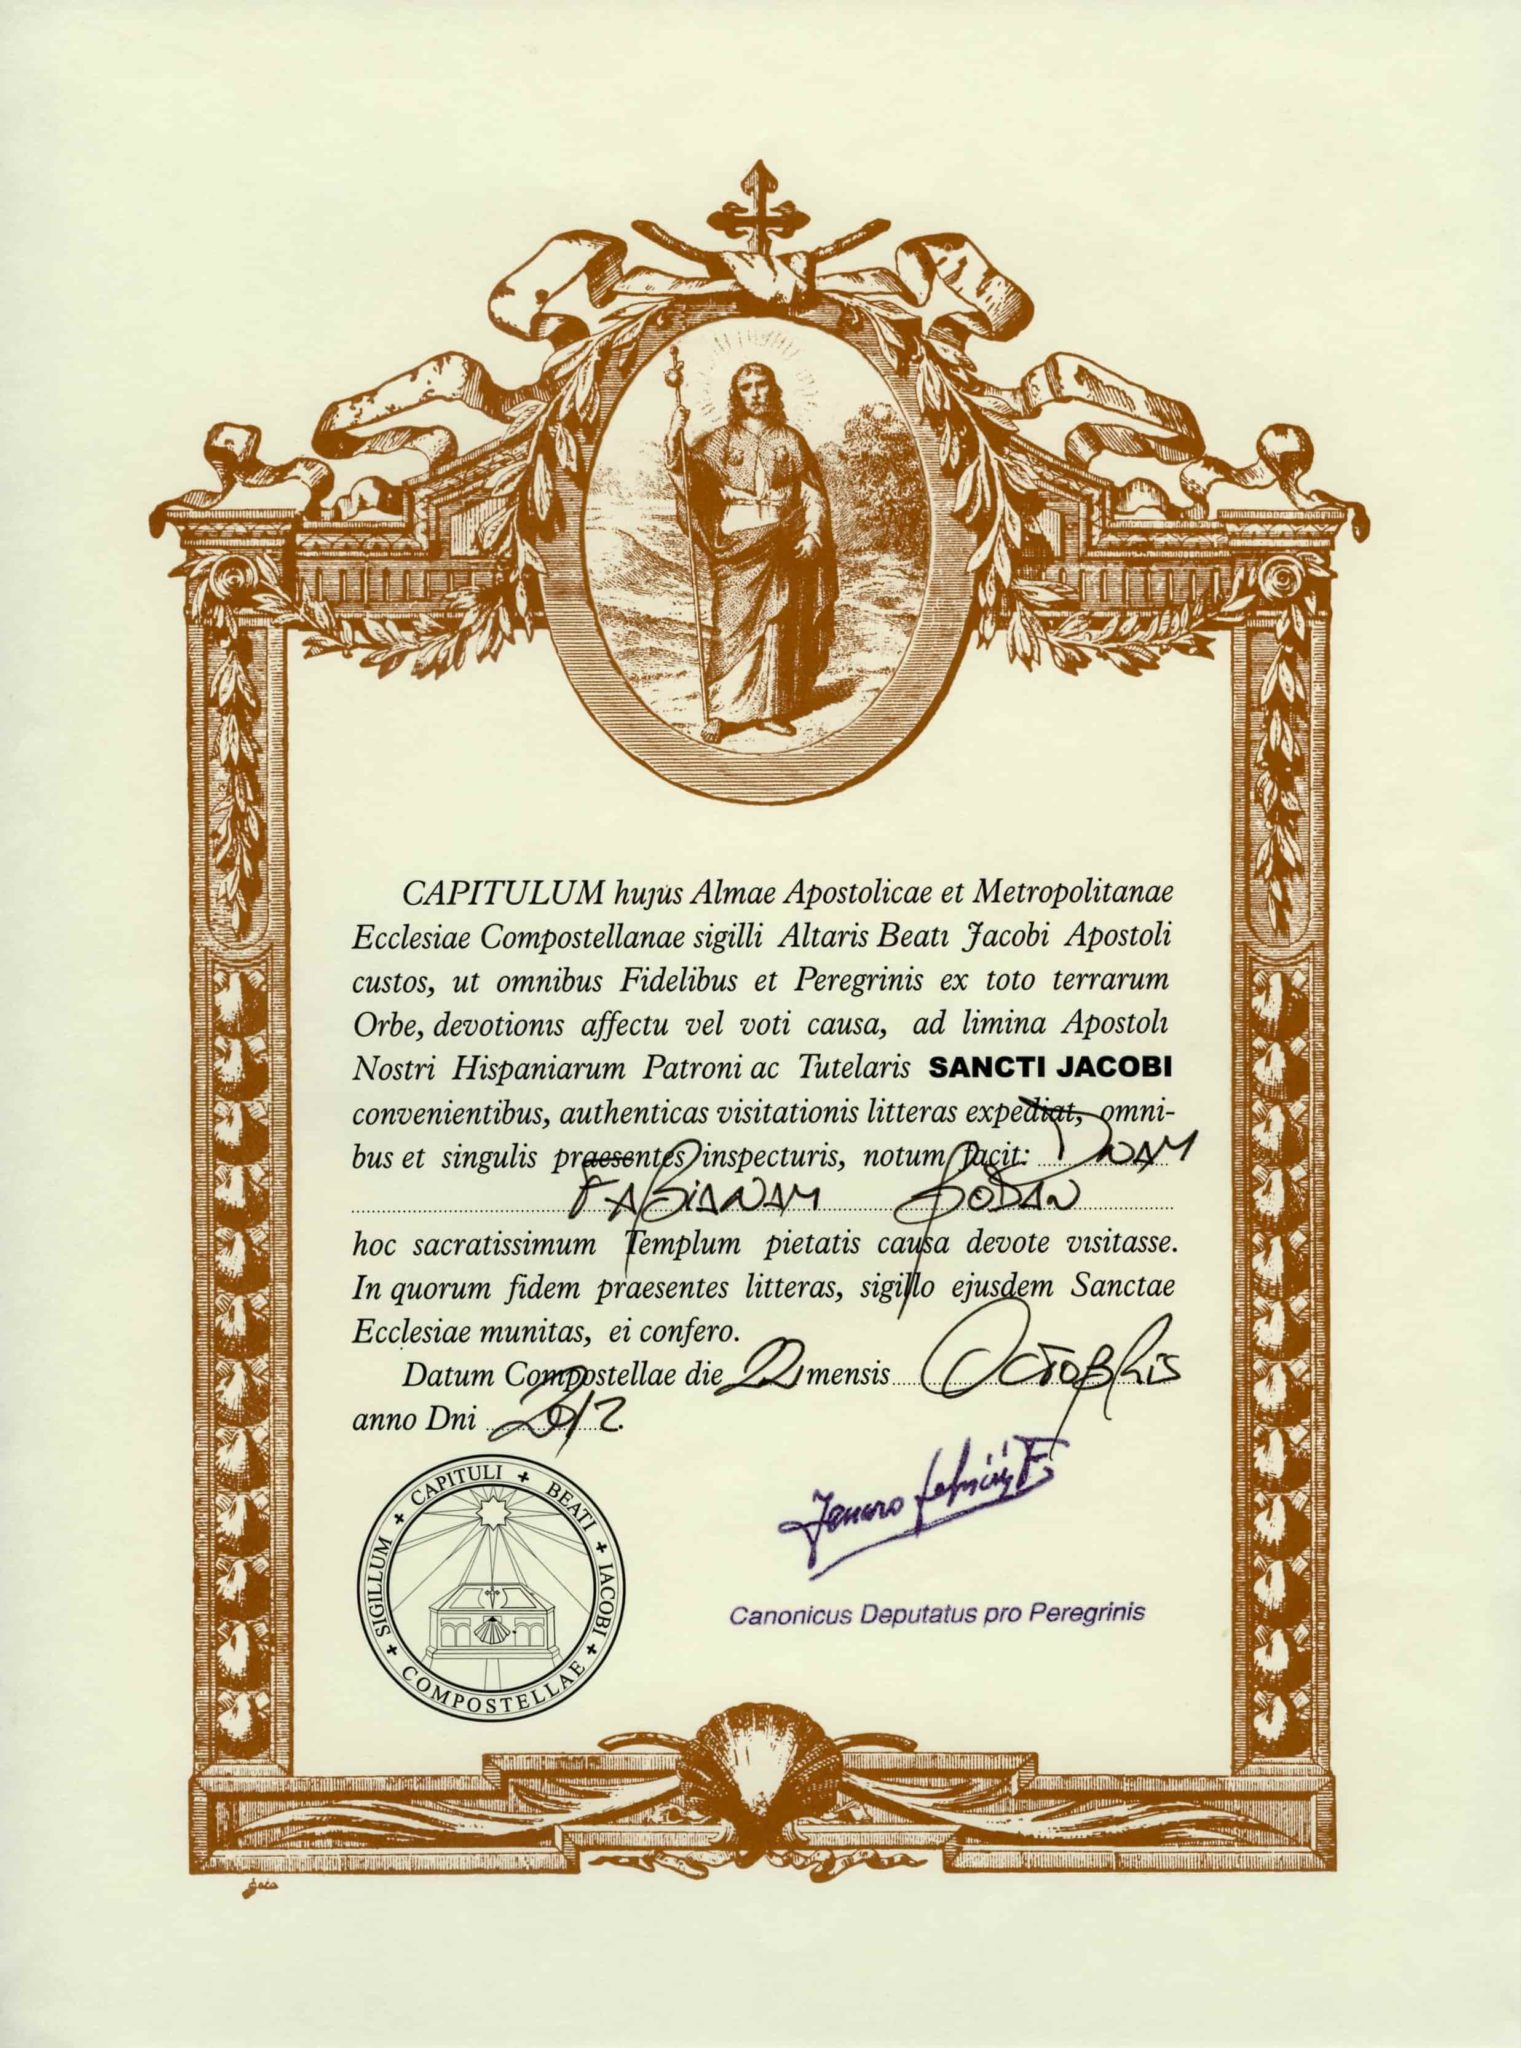 CAPITULUM hujus Almae Apostolicae et Metropolitanae
Ecclesiae Compostellanae sigilli Altaris Beati Jacobi Apostoli
custos, ut omnibus Fidelibus et Peregrinis ex toto terrarum
Orbe, devotionis affectu vel voti causa, ad limina Apostoli
Nostri Hispaniarum Patroni ac Tutelaris SANCTI JACOBI
convenientibus, authenticas visitationis litteras expediat, omni-
bus et singulis praesentes inspecturis, notum facit: DNAM
FABIANAM BODAN
hoc sacratissimum Templum pietatis causa devote visitasse.
In quorum fidem praesentes litteras, sigillo ejusdem Sanctae
Ecclesiae munitas, ei confero.
Datum Compostellae die 22 mensis OCTOBRIS
anno Dni 2012.
SIGILLUM + CAPITULI + BEATI + IACOBI + COMPOSTELLAE +
Canonicus Deputatus pro Peregrinis